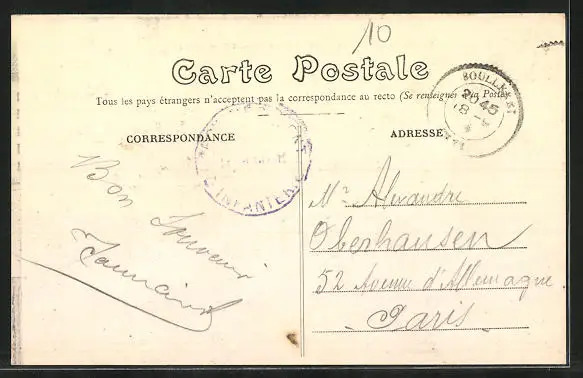 10
Carte Postale
Tous les pays étrangers n'acceptent pas la correspondance au recto (Se renseigner à la Poste)
CORRESPONDANCE
ADRESSE
20 45
18 - 9
INFANTERIE
Bon
Souvenir
Mr Alexandre
Oberhausen
52 Avenue d'Allemagne
Paris